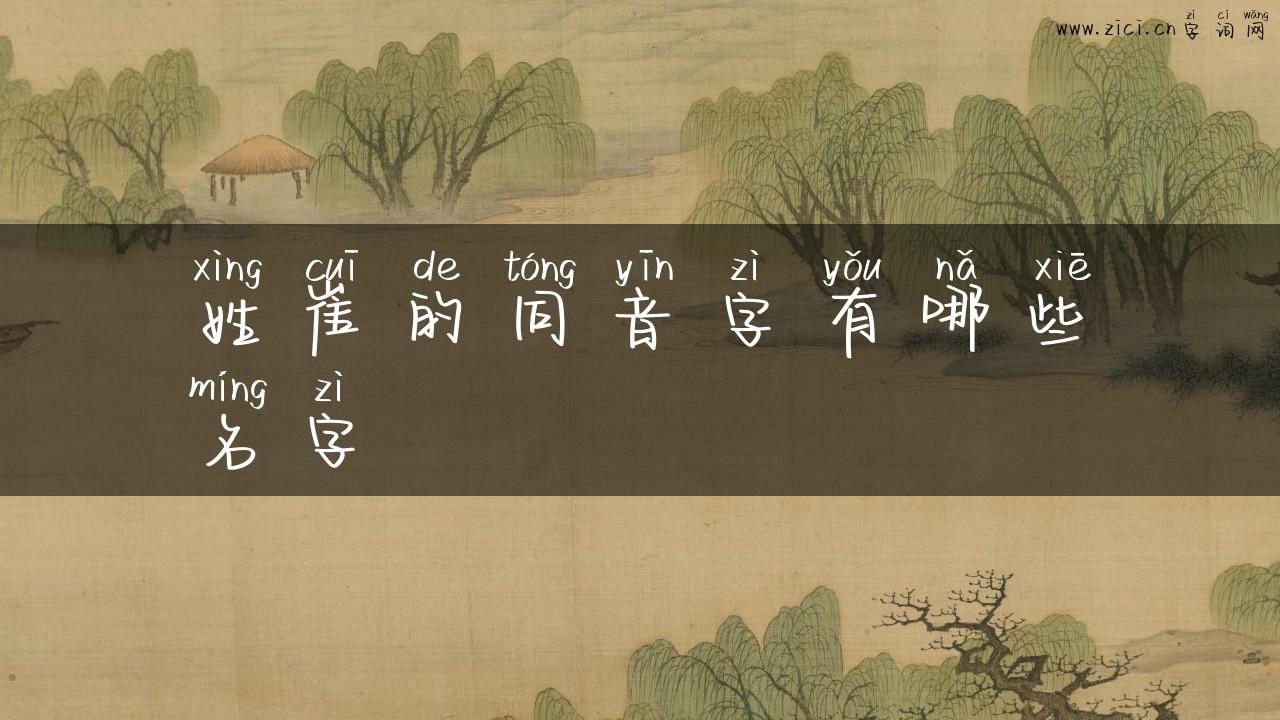 zì cí wǎng
www.zici.cn 字词网
xìng cuī de tóng yīn zì yǒu nǎ xiē
姓崔的同音字有哪些
míng zì
名字